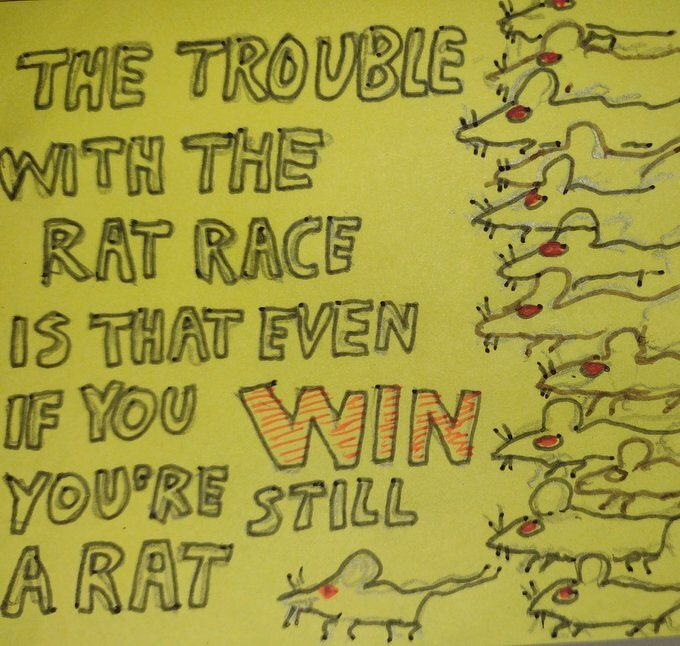 THE TROUBLE
WITH THE
RAT RACE
IS THAT EVEN
IF YOU WIN
YOU'RE STILL
A RAT